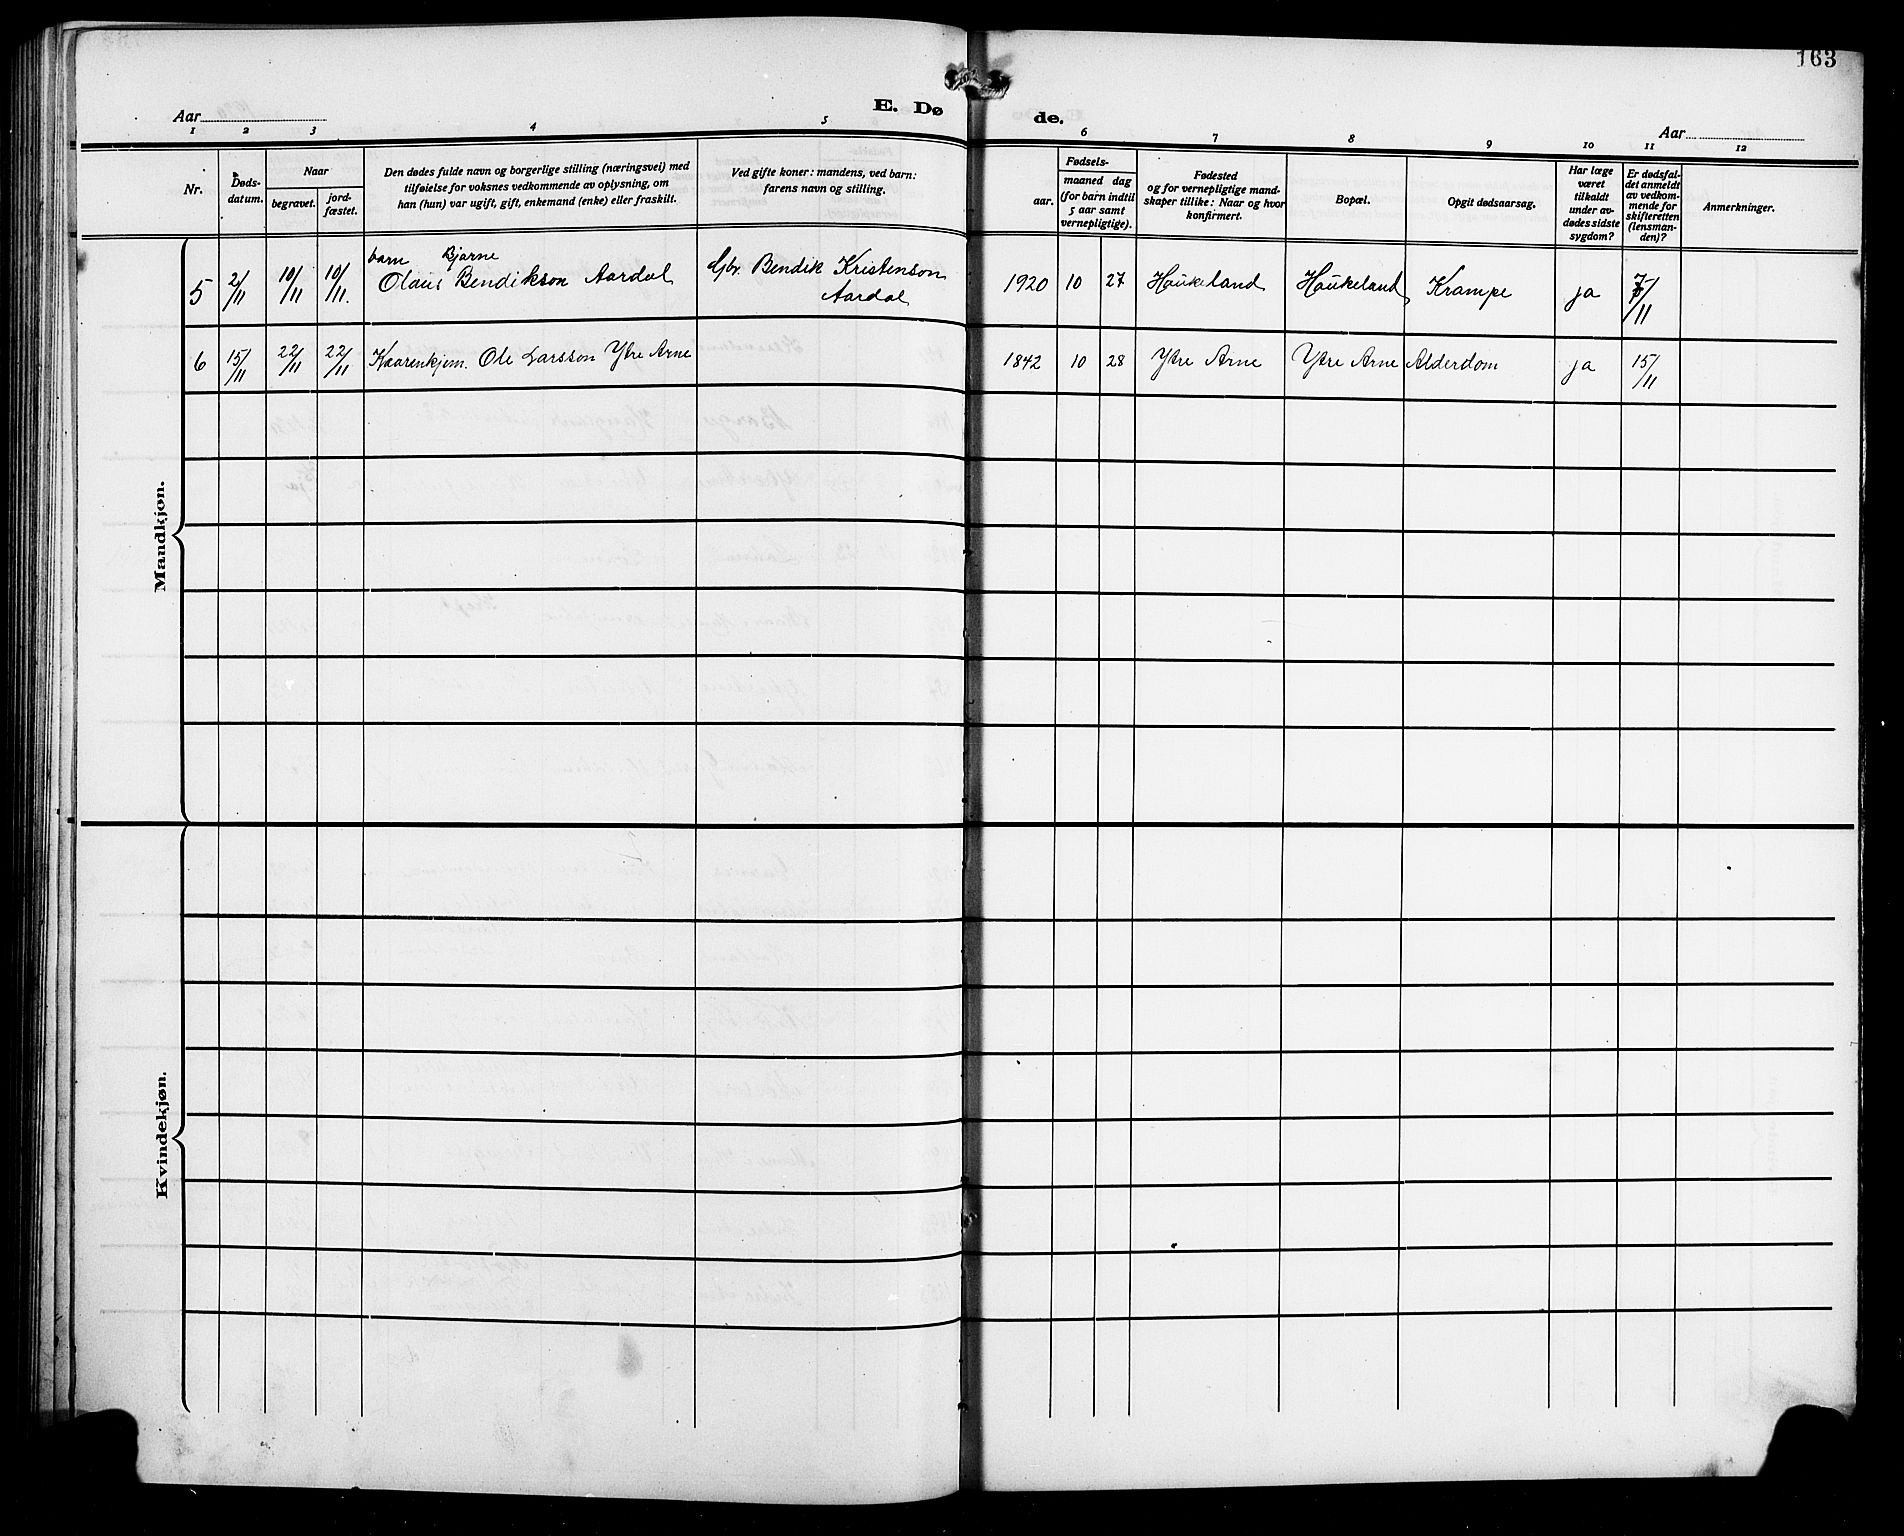 163
E. Dø de.
Aar
Aar
1 2 3 4 5 6 7 8 9 10 11 12
Nr.
Døds-
datum.
Naar
begravet.
jord-
fæstet.
Den dødes fulde navn og borgerlige stilling (næringsvei) med
tilføielse for voksnes vedkommende av oplysning, om
han (hun) var ugift, gift, enkemand (enke) eller fraskilt.
Ved gifte koner: mandens, ved barn:
farens navn og stilling.
Fødsels-
aar.
maaned dag
(for barn indtil
5 aar samt
vernepligtige).
Fødested
og for vernepligtige mand-
skaper tillike: Naar og hvor
konfirmert.
Bopæl.
Opgit dødsaarsag.
Har læge
været
tilkaldt
under av-
dødes sidste
sygdom?
Er dødsfal-
det anmeldt
av vedkom-
mende for
skifteretten
(lensman-
den)?
Anmerkninger.
Mandkjøn.
barn Bjarne
5 2/11 10/11 10/11. Olaus Bendikson Aardal Gbr. Bendik Kristenson
Aardal
1920 10 27 Haukeland Haukeland Krampe ja 5/11
6 15/11 22/11 22/11 Kaarenkjem. Ole Larsson Ytre Arne 1842 10 28 Ytre Arne Ytre Arne Alderdom ja 15/11
Kvindekjøn.